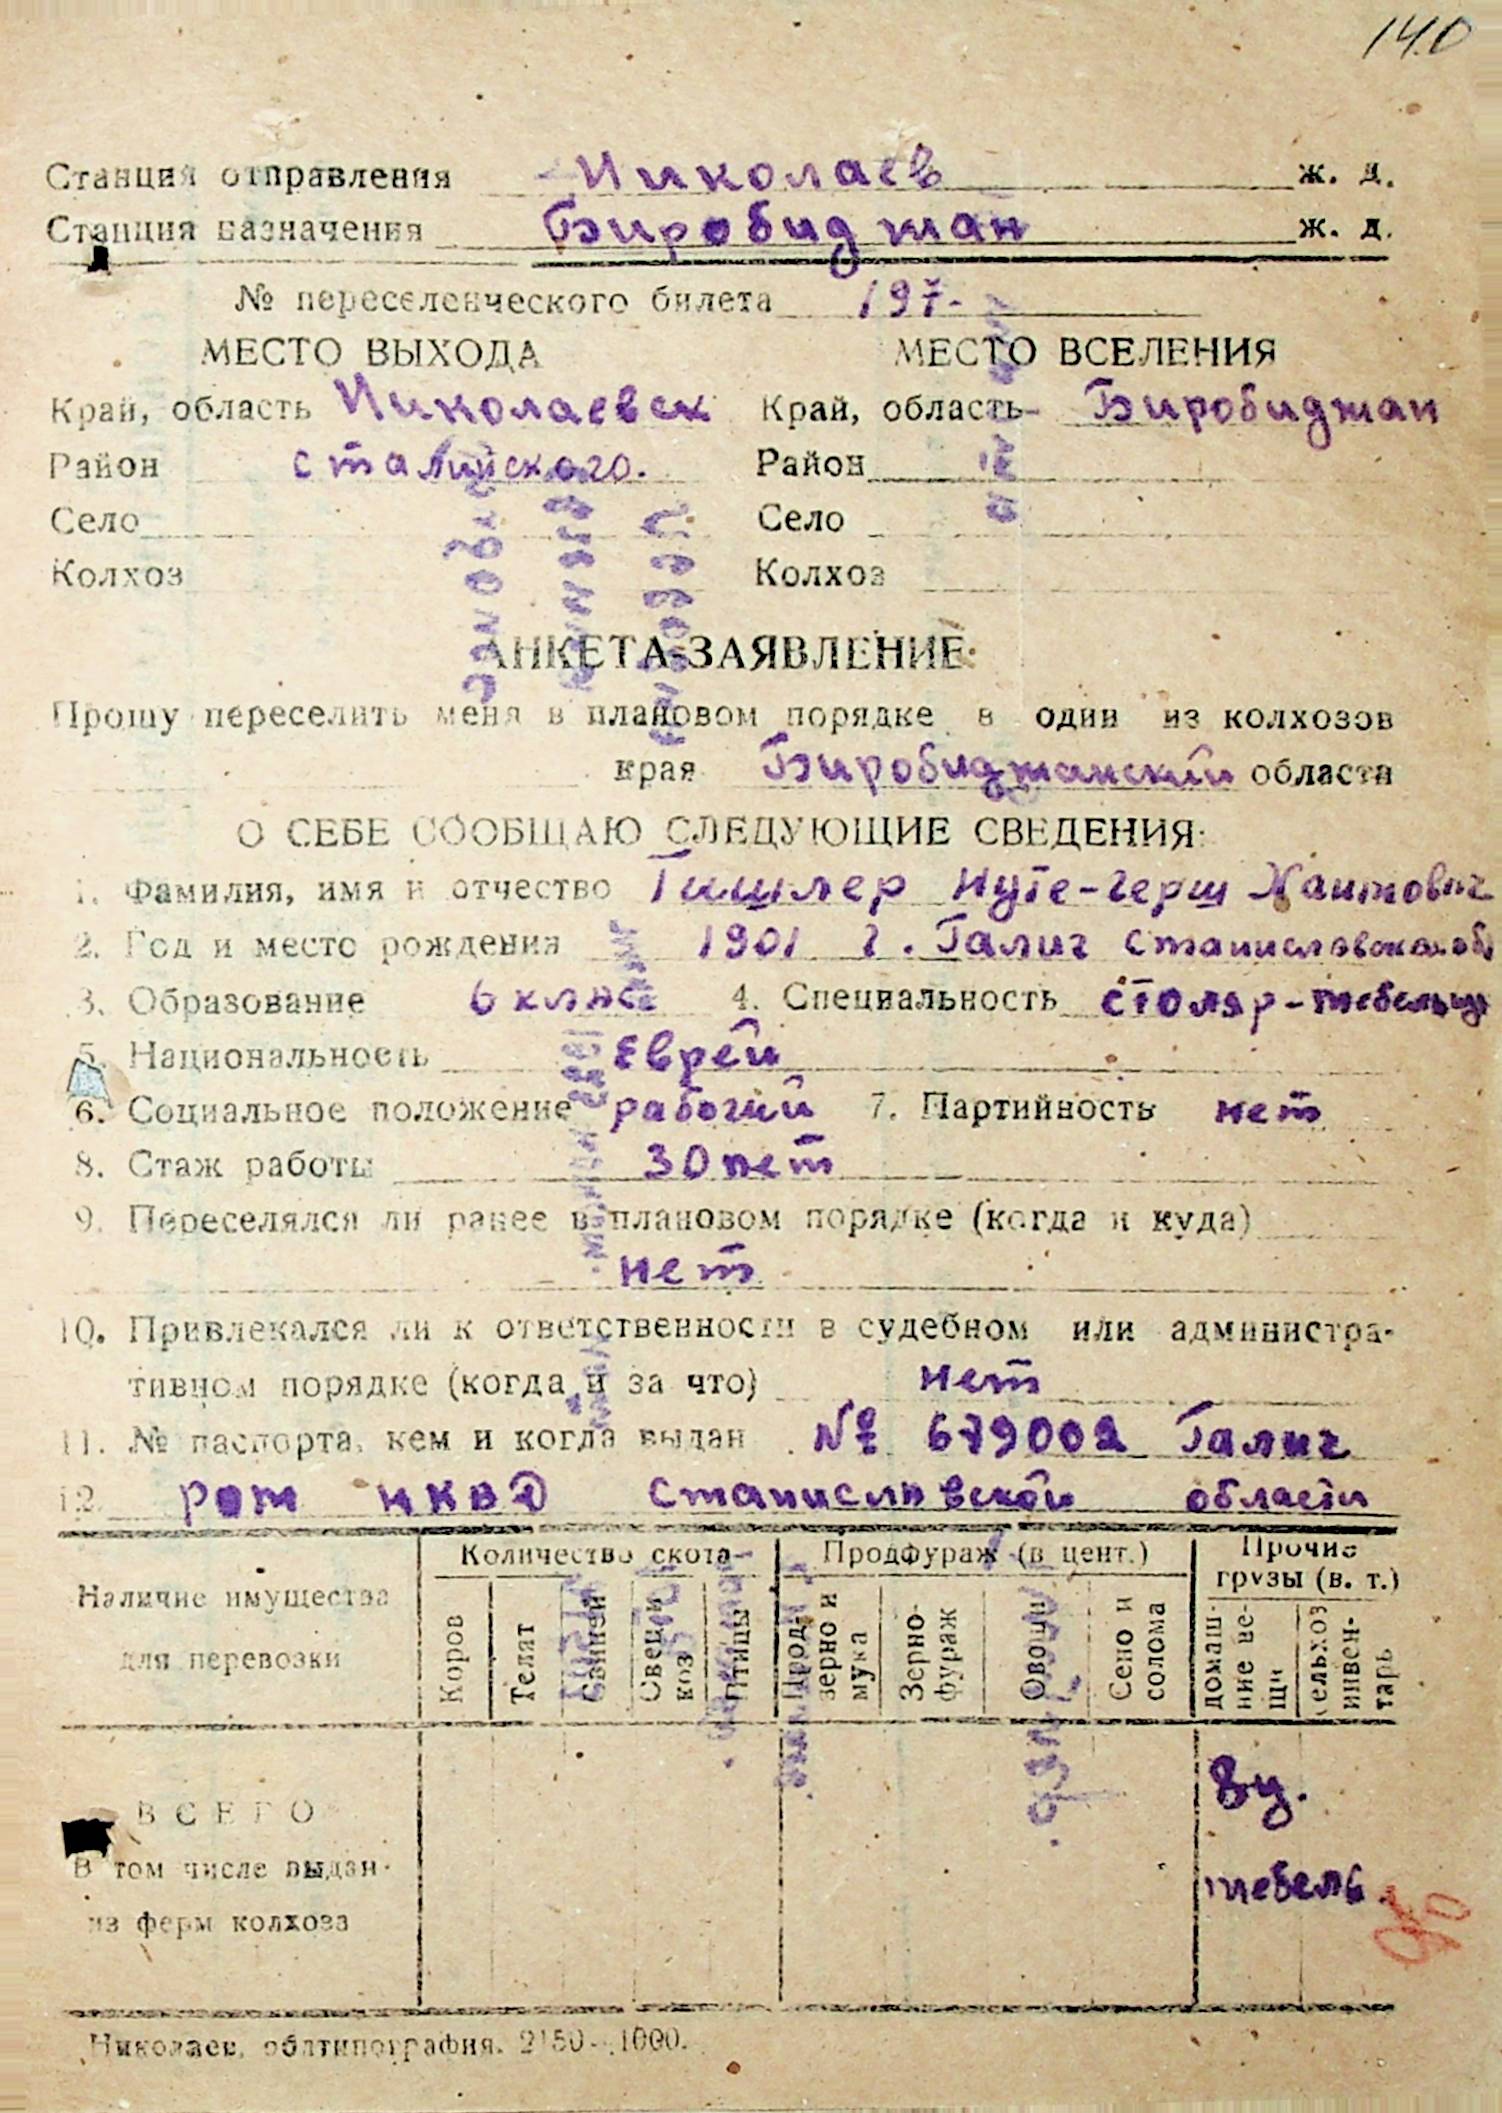 140
Станция отправления Николаев ж. д.
Станция назначения Биробиджан ж. д.
№ переселенческого билета 197-
МЕСТО ВЫХОДА МЕСТО ВСЕЛЕНИЯ
Край, область Николаевск Край, область Биробиджан
Район сталинского. Район
Село Село
Колхоз Колхоз
АНКЕТА-ЗАЯВЛЕНИЕ
Прошу переселить меня в плановом порядке в один из колхозов
края Биробиджанский области
О СЕБЕ СООБЩАЮ СЛЕДУЮЩИЕ СВЕДЕНИЯ:
1. Фамилия, имя и отчество Гишлер Нуте-Герш Хаимович
2. Год и место рождения 1901 г. Галич Станиславская об
3. Образование 6 класс 4. Специальность столяр-мебельщ
5. Национальность Еврей
6. Социальное положение рабочий 7. Партийность нет
8. Стаж работы 30 лет
9. Переселялся ли ранее в плановом порядке (когда и куда)
нет
10. Привлекался ли к ответственности в судебном или администра-
тивном порядке (когда и за что) нет
11. № паспорта, кем и когда выдан № 679002 Галич
12. ром НКВД Станиславской области
Наличие имущества для перевозки
Количество скота Продфураж (в цент.) Прочие грузы (в. т.)
Коров Телят Свиней Овец и коз Птицы Прод. зерно и мука Зерно-фураж Овощи Сено и солома домаш-ние ве-щи сельхоз инвен-тарь
ВСЕГО 8ц.
В том числе выдан- мебель.
из ферм колхоза
90
Николаев, облтипография. 2150-1000.